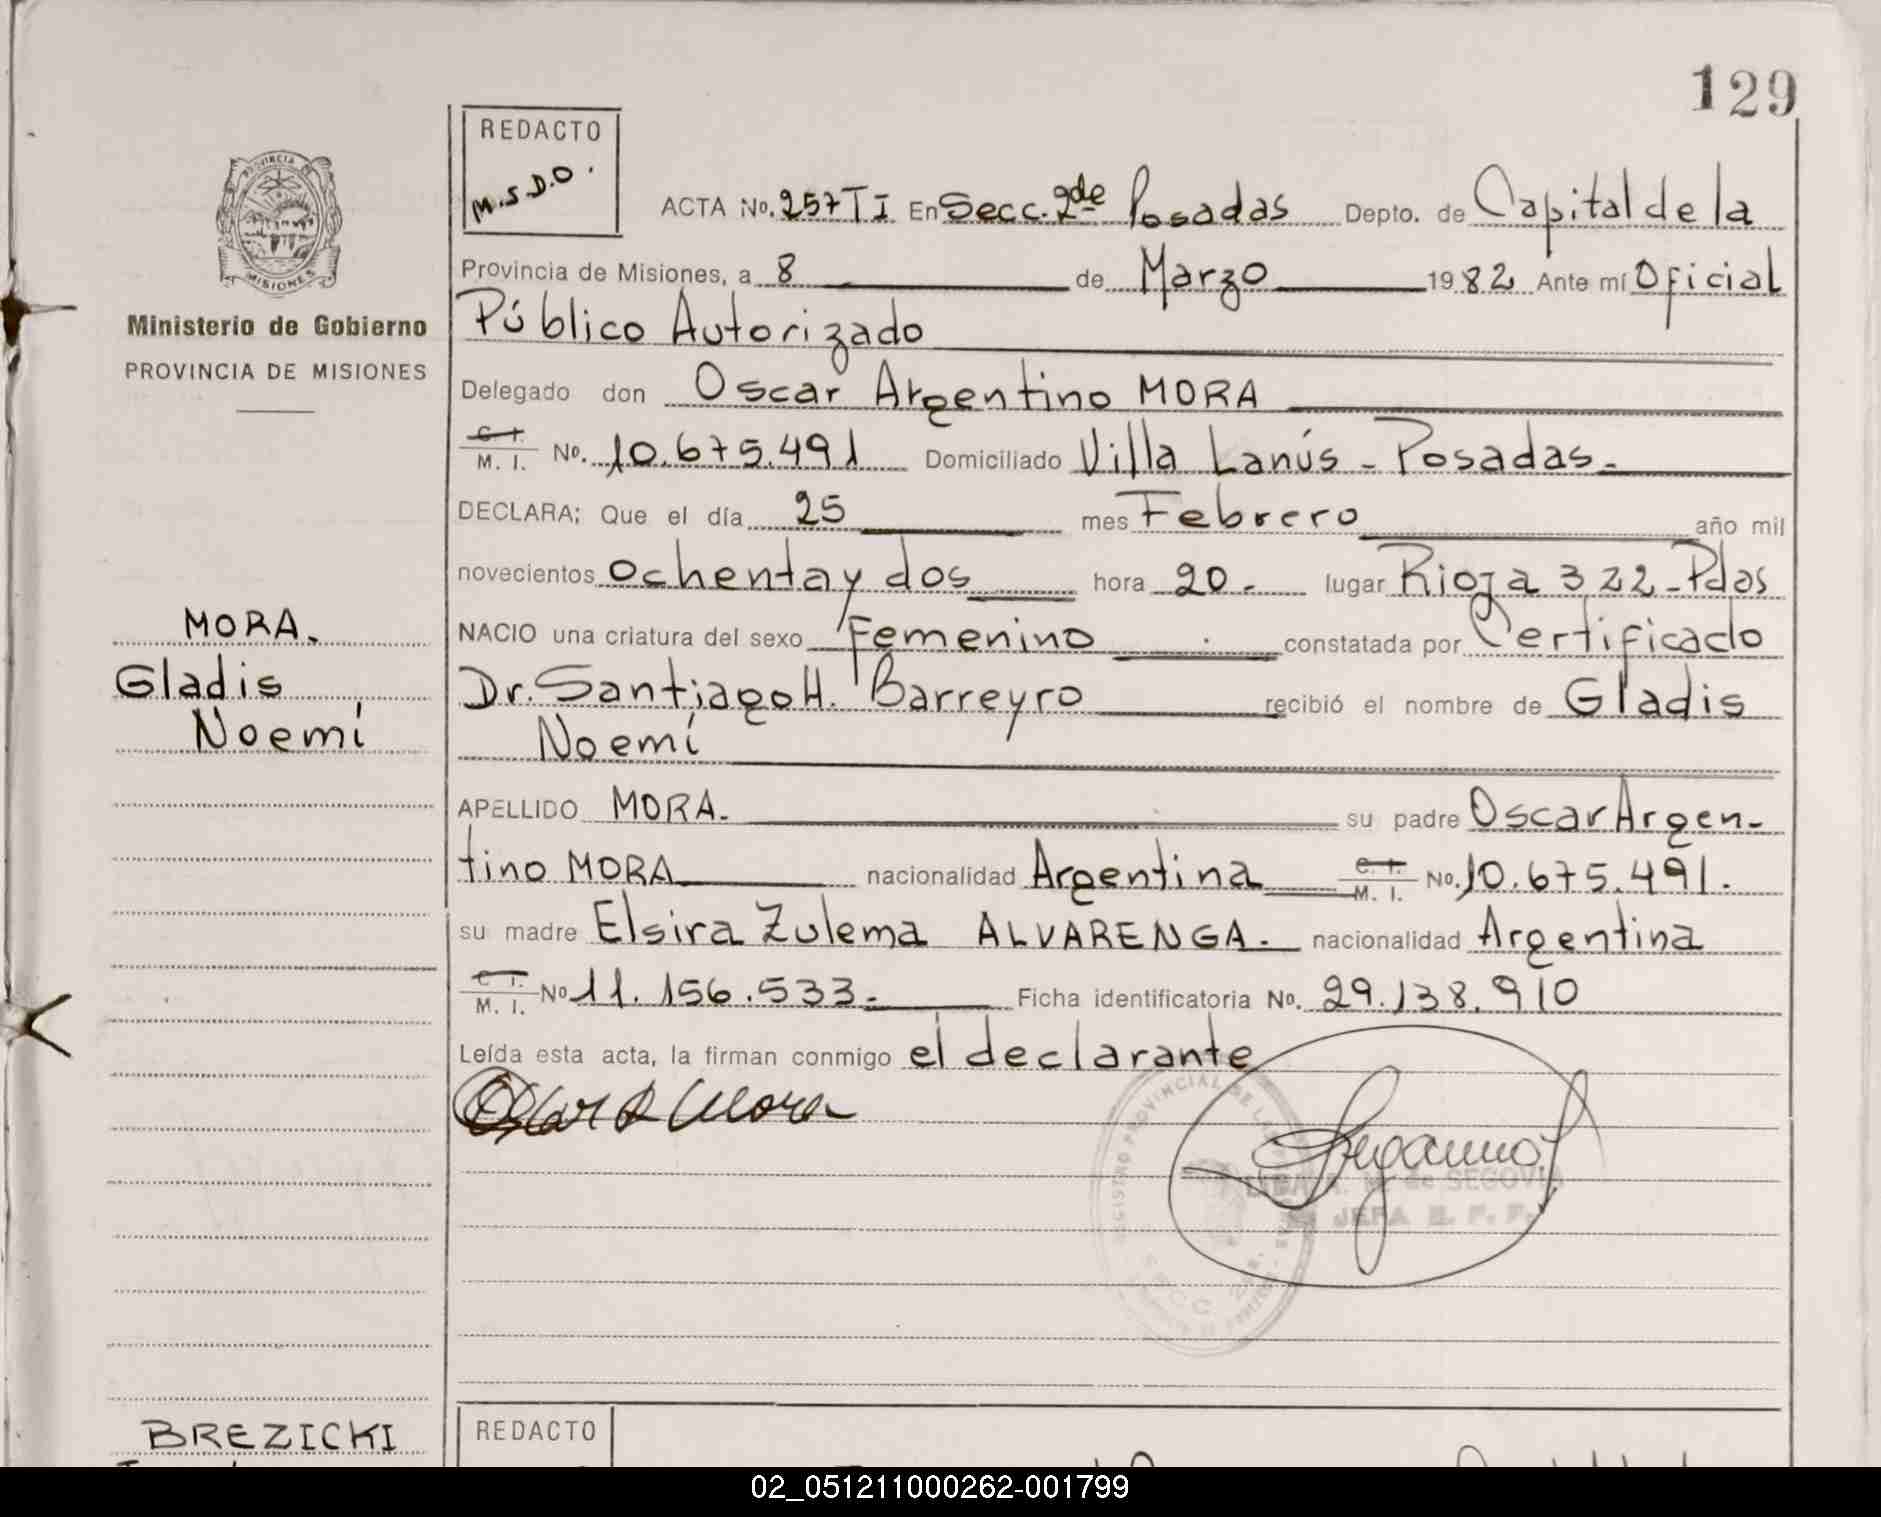 129
REDACTO
M.S.D.O.
PROVINCIA DE
MISIONES
Ministerio de Gobierno
PROVINCIA DE MISIONES
ACTA No. 257 TI En Secc. 2de Posadas Depto. de Capital de la
Provincia de Misiones, a 8 de Marzo 1982 Ante mí Oficial
Público Autorizado
Delegado don Oscar Argentino MORA
C. I. M. I. No. 10.675.491 Domiciliado Villa Lanús - Posadas.
DECLARA; Que el día 25 mes Febrero año mil
novecientos ochenta y dos hora 20.- lugar Rioja 322-Pdas
NACIO una criatura del sexo Femenino constatada por Certificado
Dr. Santiago H. Barreyro recibió el nombre de Gladis
Noemí
MORA.
Gladis
Noemí
APELLIDO MORA. su padre Oscar Argen-
tino MORA nacionalidad Argentina C. I. M. I. No. 10.675.491.
su madre Elsira Zulema ALVARENGA. nacionalidad Argentina
C. I. M. I. No 11.156.533. Ficha identificatoria No. 29.138.910
Leída esta acta, la firman conmigo el declarante
Oscar A Mora
de SEGOVIA
JEFA
BREZICKI
REDACTO
02_051211000262-001799